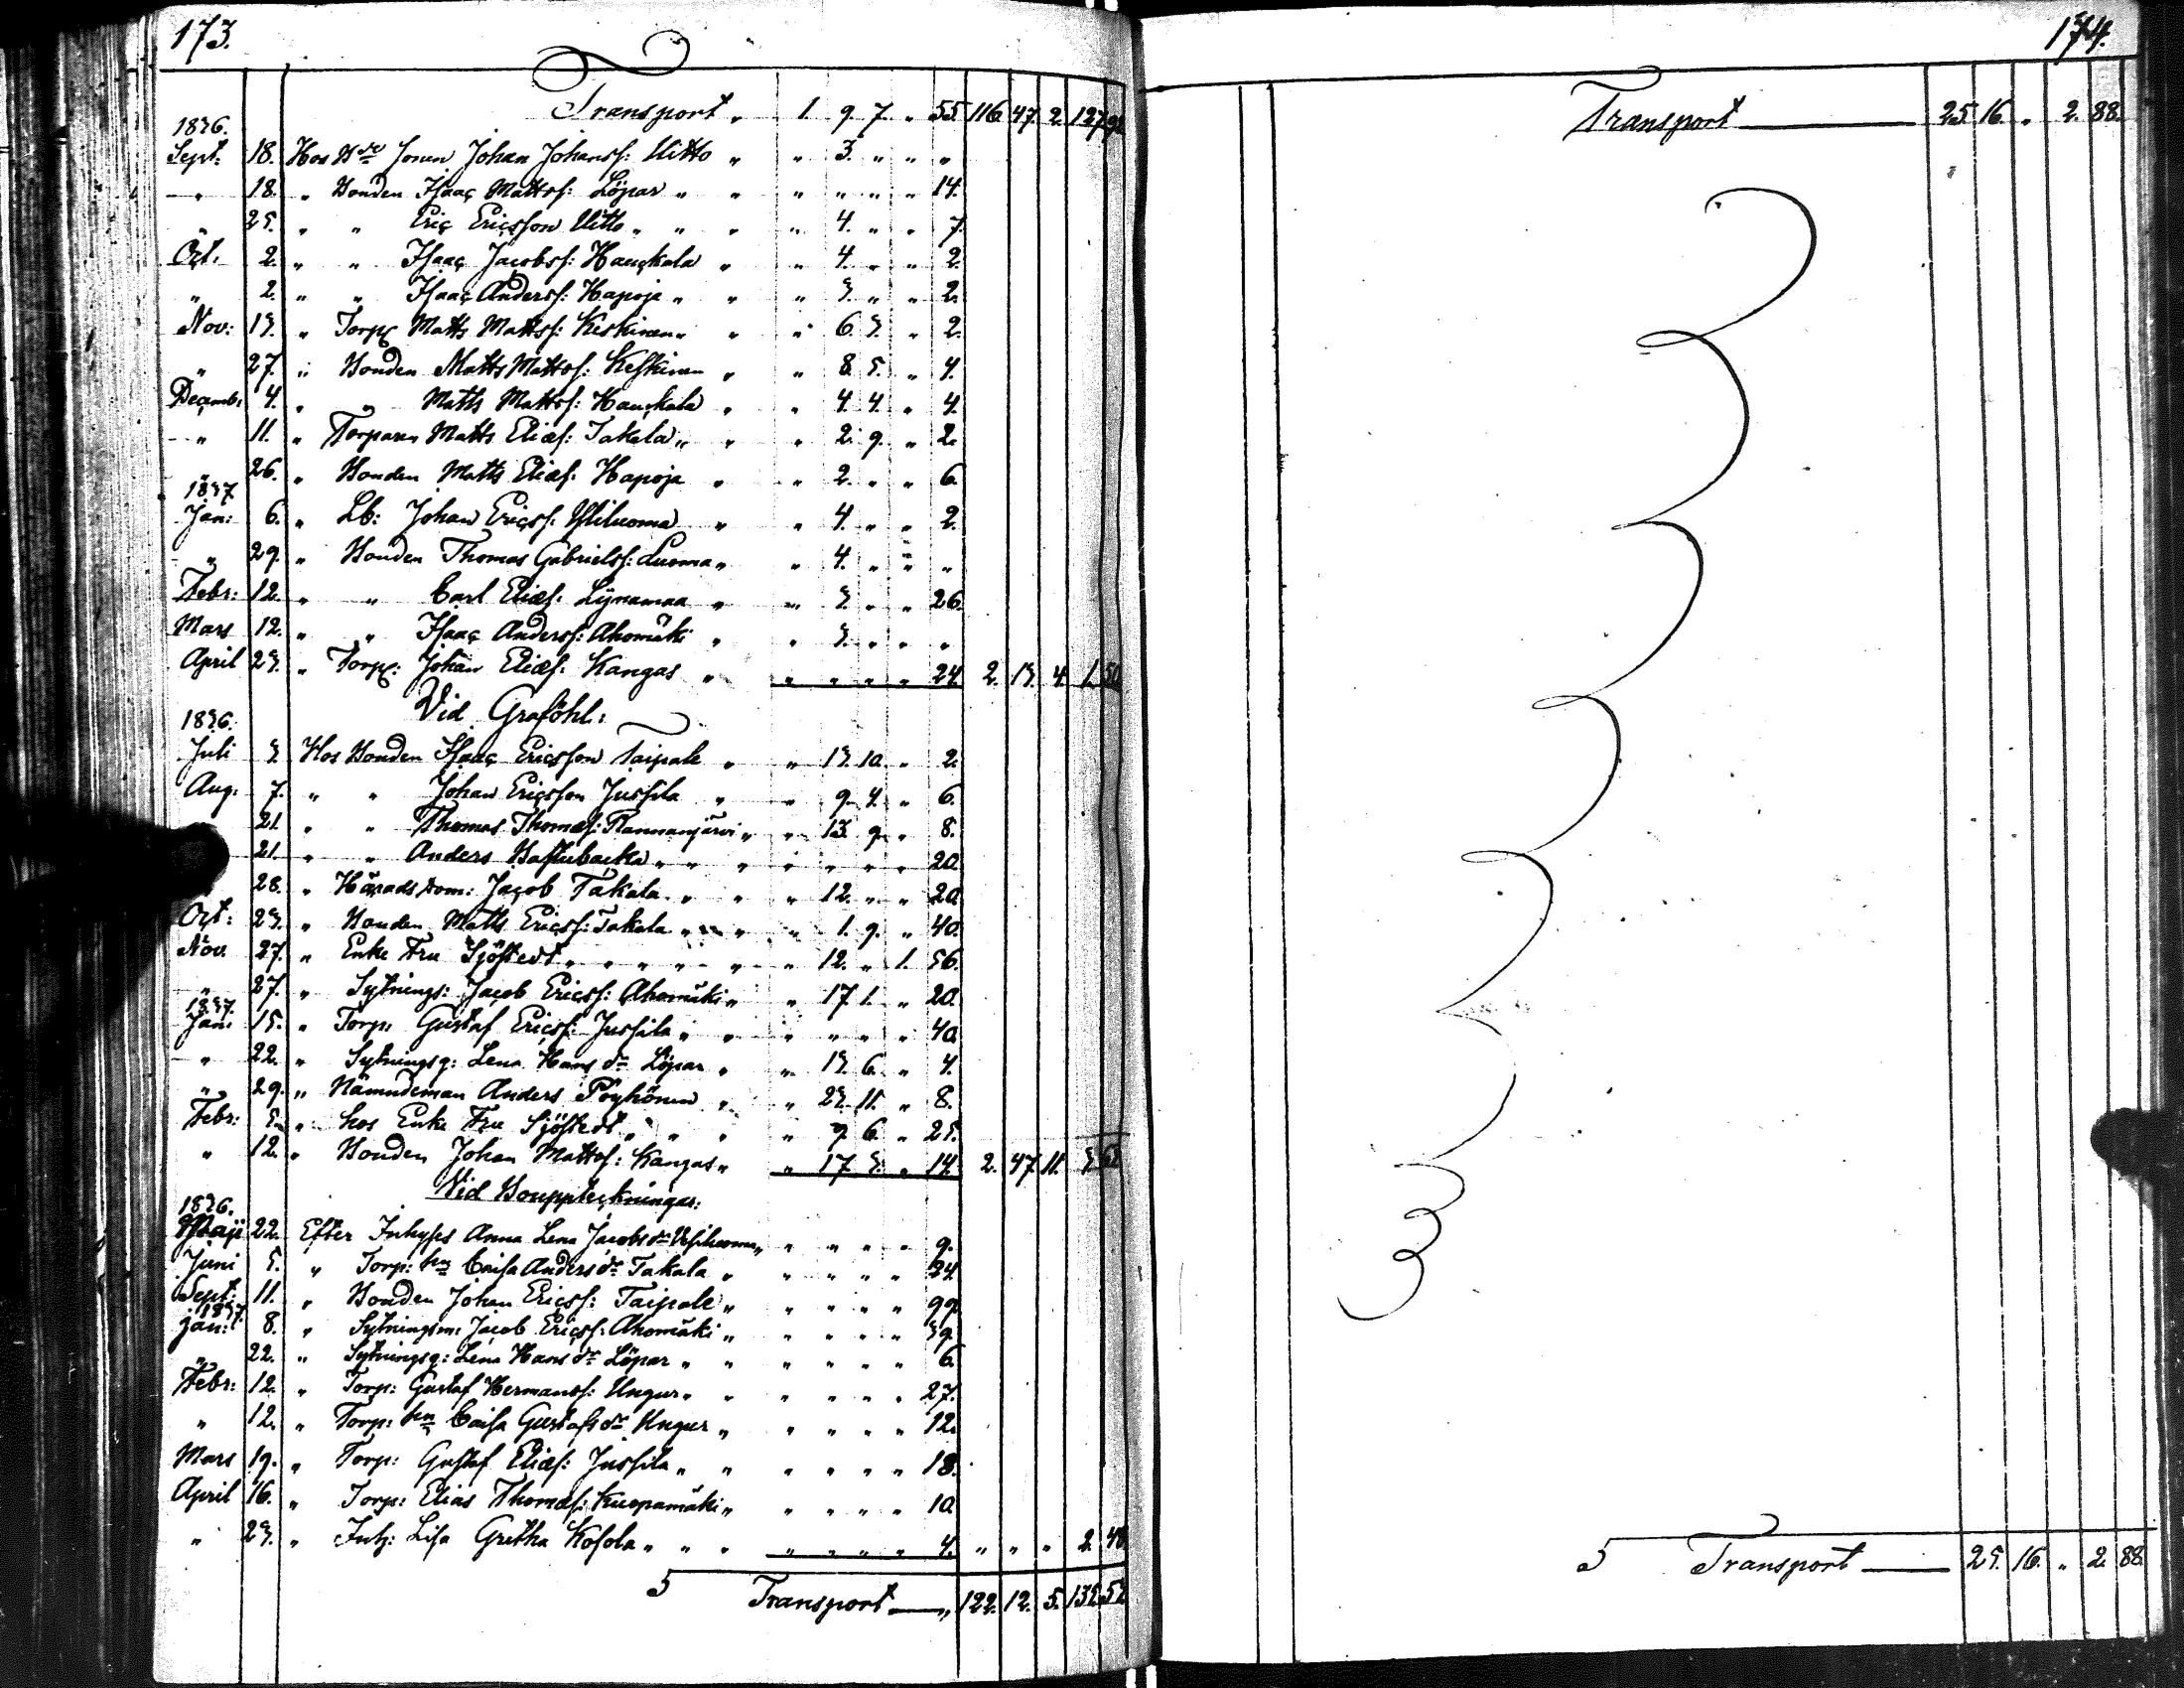 173.
Transport „ 1. 9. 7. „ 55. 116. 47. 2. 127. 92
1836.
Sept: 18. Hos Bde Sonen Johan Johanss: Uitto „ „ 3. „ „ „
„ 18. „ Bonden Isaac Mattss: Löpar „ „ „ „ „ „ 14.
„ 25. „ „ Eric Ericsson Uitto „ „ „ „ 4. „ „ 7.
Oct. 2. „ „ Isaac Jacobss: Hauckala „ „ 4. „ „ 2.
„ 2. „ „ Isaac Anderss: Hapoja „ „ „ 3. „ „ 2.
Nov: 13. „ Torp: Matts Mattss: Keskinen „ „ „ 6. 3. „ 2.
„ 27. „ Bonden Matts Mattss: Keskinen „ „ 8. 5. „ 4.
Decemb: 4. „ „ Matts Mattss: Hauckala „ „ 4. 4. „ 4.
„ 11. „ Torparen Matts Eliæs: Takala „ „ „ 2. 9. „ 2.
26. „ Bonden Matts Eliæs: Hapoja „ „ 2. „ „ 6.
1837
Jan: 6. „ Lb: Johan Ericss: Ylilucoma „ „ 4. „ „ 2.
„ 29. „ Bonden Thomas Gabrielss: Luoma „ „ 4. „ „ „
Febr: 12. „ „ Carl Eliæs: Lÿnamaa „ „ 3. „ „ 26.
Mars 12. „ „ Isaac Anderss: Ahomäki „ „ 3. „ „ „
April 23. „ Torp: Johan Eliæs: Kangas „ „ „ „ „ 24. 2. 13. 4. 1. 50
Vid Graföhl:
1836.
Juli 3. Hos Bonden Isaac Ericsson Taipale „ „ 13. 10. „ 2.
Aug. 7. „ „ Johan Ericsson Jussila „ „ 9. 4. „ 6.
21. „ „ Thomas Thomæs: Rannanjärvi „ „ 13. 9. „ 8.
21. „ „ Anders Bastubacka „ „ „ „ „ „ „ 20.
28. „ Härads dom: Jacob Takala „ „ „ 12. „ „ 20.
Oct: 23. „ Bonden Matts Ericss: Takala „ „ „ „ 1. 9. „ 40.
Nov. 27. „ Enke Fru Sjöstedt „ „ „ „ „ „ 12. „ 1. 56.
„ 27. „ Sytnings: Jacob Ericss: Ahomäki „ „ 17. 1. „ 20.
1837.
Jan: 15. „ Torp: Gustaf Ericss: Jussila „ „ „ „ „ „ 40.
„ 22. „ Sytningsq: Lena Hans dr Löpar „ „ 13. 6. „ 4.
„ 29. „ Nämndeman Anders Pöyhönen „ „ 23. 11. „ 8.
Febr: 5. „ hos Enke Fru Sjöstedt „ „ „ „ 9. 6. „ 25.
„ 12. „ Bonden Johan Mattss: Kangas „ „ 17. 3. „ 14. 2. 47. 11. 3. 62
Vid Bouppteckningar:
1836.
Maji 22. Efter Inhyses Anna Lena Jacobs dr „ „ „ „ „ 9.
Juni 5. „ Torp: hu Caisa Anders dr Takala „ „ „ „ „ 24.
Sept: 11. „ Bonden Johan Ericss: Taipale „ „ „ „ „ 99.
1837
jan: 8. „ Sytningsm: Jacob Ericss: Ahomäki „ „ „ „ „ 39.
„ 22. „ Sytningsq: Lena Hans dr Löpar „ „ „ „ „ „ 6.
Febr: 12. „ Torp: Gustaf Hermanss: Ungur „ „ „ „ „ „ 27.
„ 12. „ Torp: hu Caisa Gustafs dr Ungur „ „ „ „ „ 12.
Mars 19. „ Torp: Gustaf Eliæs: Jussila „ „ „ „ „ „ 18.
April 16. „ Torp: Elias Thomæs: Kuopamäki „ „ „ „ „ 10.
„ 23. „ Inh: Lisa Gretha Kosola „ „ „ „ „ „ „ 4. „ „ „ 2. 48.
5 Transport „ 122. 12. 5. 135. 52
174.
Transport 25. 16. „ 2. 88.
5 Transport 25. 16. „ 2. 88.